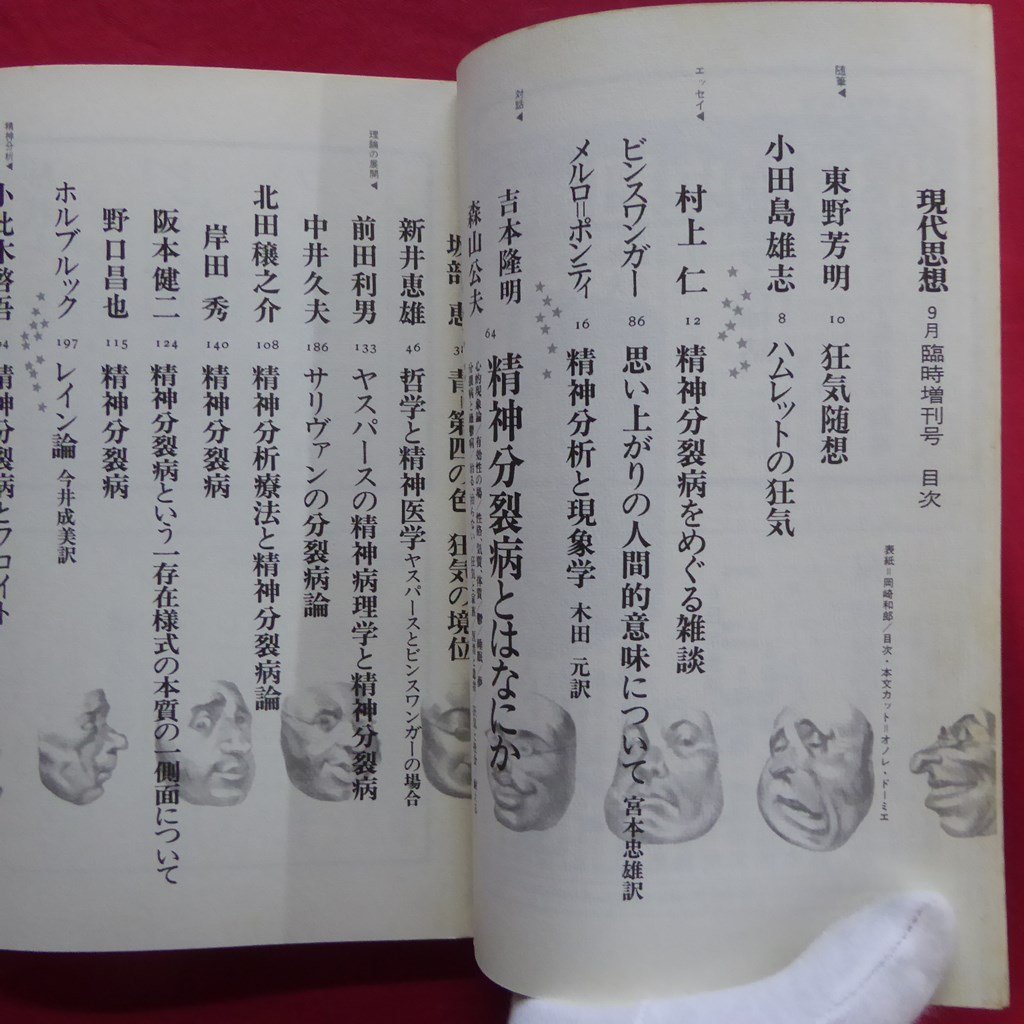 現代思想 9月臨時増刊号 目次
表紙=岡崎和郎/目次・本文カット=オノレ・ドーミエ
随筆◀
東野芳明 10 狂気随想
小田島雄志 8 ハムレットの狂気
エッセイ◀
村上 仁 12 精神分裂病をめぐる雑談
ビンスワンガー 86 思い上がりの人間的意味について 宮本忠雄訳
メルロ=ポンティ 16 精神分析と現象学 木田 元訳
対話◀
吉本隆明
森山公夫 64 精神分裂病とはなにか
坂部 恵 青=第四の色 狂気の境位
新井恵雄 46 哲学と精神医学 ヤスパースとビンスワンガーの場合
理論の展開◀
前田利男 133 ヤスパースの精神病理学と精神分裂病
中井久夫 186 サリヴァンの分裂病論
北田穣之介 108 精神分析療法と精神分裂病論
岸田 秀 140 精神分裂病
阪本健二 124 精神分裂病という一存在様式の本質の一側面について
野口昌也 115 精神分裂病
ホルブルック 197 レイン論 今井成美訳
精神分析◀
小此木啓吾 精神分裂病とフロイト